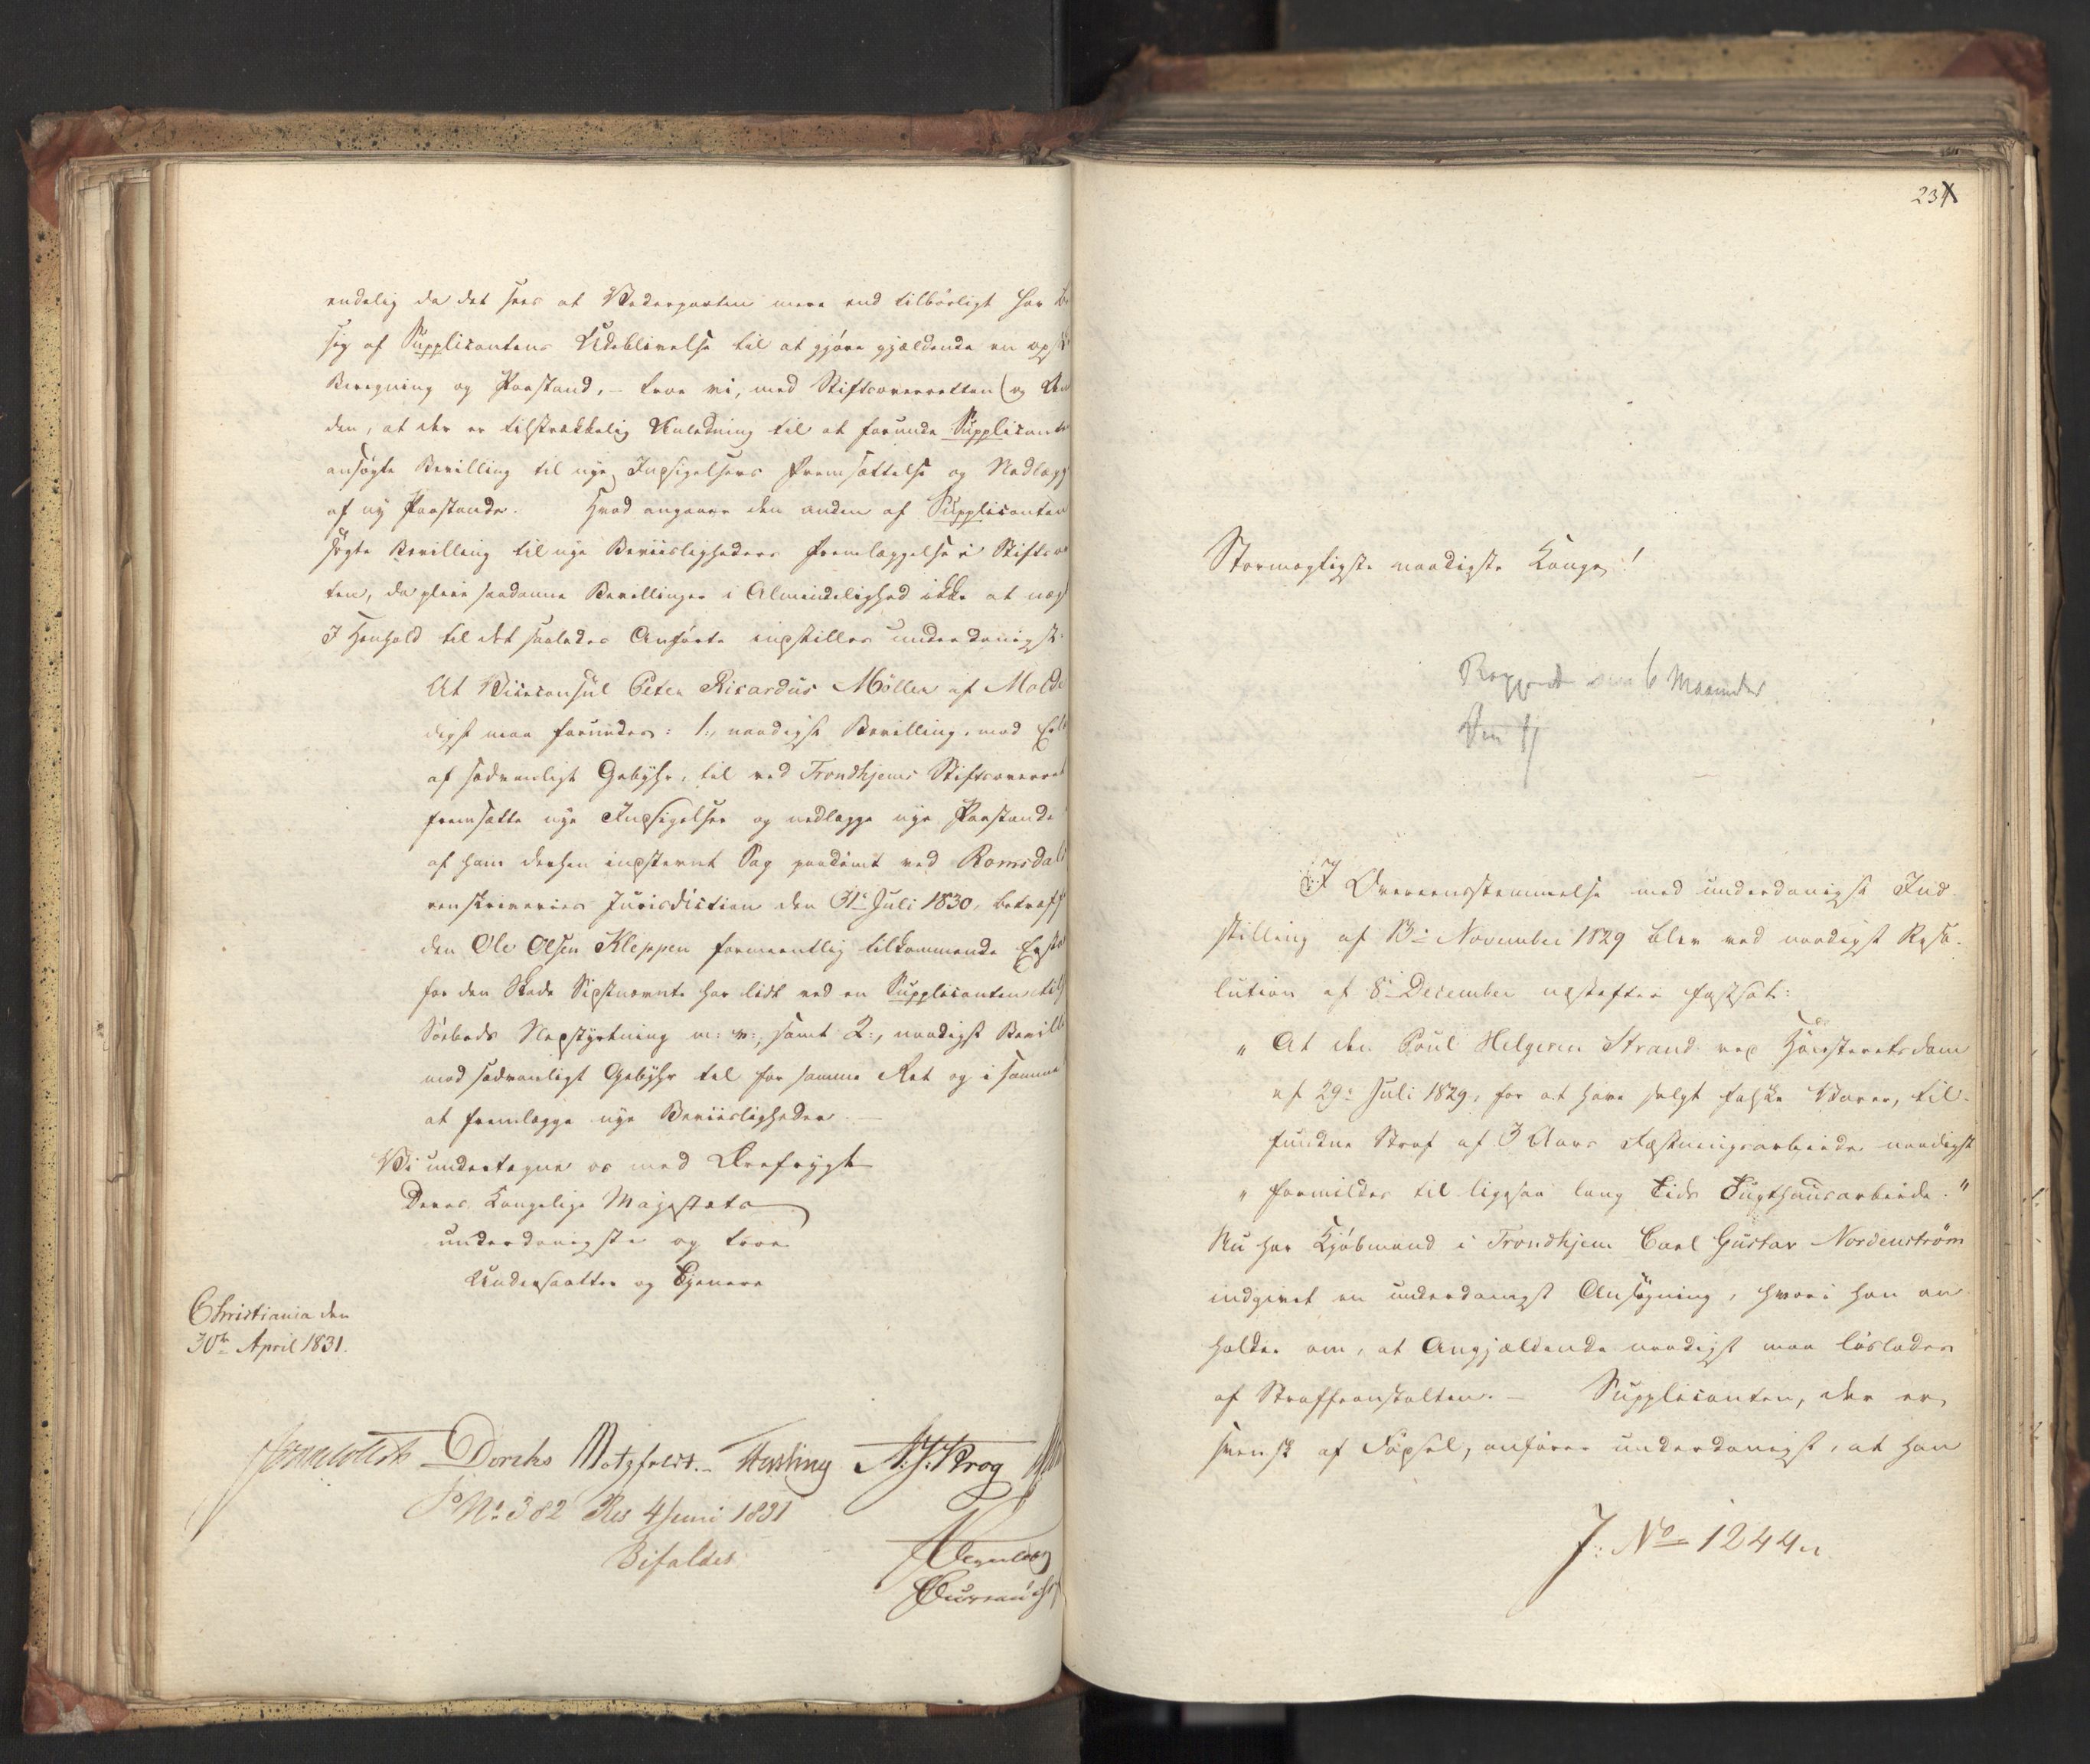 endelig da det sees at Vederparten mere end tilbørligt har
sig af Supplicantens Udeblivelse til at gjøre gjældende en
Beregning og Paastand, – troe vi, med Stiftsoverretten og
den, at der er tilstrækkelig Anledning til at forunde Supplicanten
ansøgte Bevilling til nye Indsigelsers Fremsættelse og Nedlægg
af ny Paastande. Hvad angaaer den anden af Supplicanten
søgte Bevilling til nye Beviisligheders Fremlæggelse i Stiftsov
ten, da pleie saadanne Bevillinger i Almindelighed ikke at næg
I Henhold til det saaledes Anførte indstilles underdanigst:
At Viceconsul Peter Ricardus Møller af Molde
digst maa forundes: 1, naadigst Bevilling, mod
af sædvanligt Gebyhr, til ved Trondhjems Stiftsoverret
fremsætte nye Indsigelser og nedlægge nye Paastande
af ham derhen indstevnt Sag paadømt ved Romsdals
renskriveries Jurisdiction den 31te Juli 1830, betreff
den Ole Olsen Kleppen formeentlig tilkommende Erstat
for den Skade Sidstnævnte har lidt ved en Supplicanten tilh
Søebods Nedstyrtning m: v:, samt 2, naadigst Bevill
mod sædvanligt Gebyhr til for samme Ret og i samme
at fremlægge nye Beviisligheder.
Vi undertegne os med Ærefrygt
Deres Kongelige Majestæts
underdanigste og troe
Undersaatter og Tjenere
Christiania den
30te April 1831.
Sommerhielm Diriks Motzfeldt. Fasting A. J. Krog
No 382 Res 4 Juni 1831
Bifaldes
Bureauchef
234
Stormægtigste naadigste Konge!
6 Maaneder
I Overeensstemmelse med underdanigst Ind
stilling af 13de November 1829 blev ved naadigst Reso-
lution af 8de December næstefter fastsat:
„At den Poul Helgesen Strand ved Høiesteretsdom
af 29de Juli 1829, for at have solgt falske Varer, til-
fundne Straf af 3 Aars Fæstningsarbeide naadigst
„formildes til ligesaa lang Tids Tugthuusarbeide."
Nu har Kjøbmand i Trondhjem Carl Gustav Nordenstrøm
indgivet en underdanigst Ansøgning, hvori han an
holder om, at Angjældende naadigst maa løslades
af Straffeanstalten. – Supplicanten, der er
svensk af Fødsel, anfører underdanigst, at han
J: No 1244